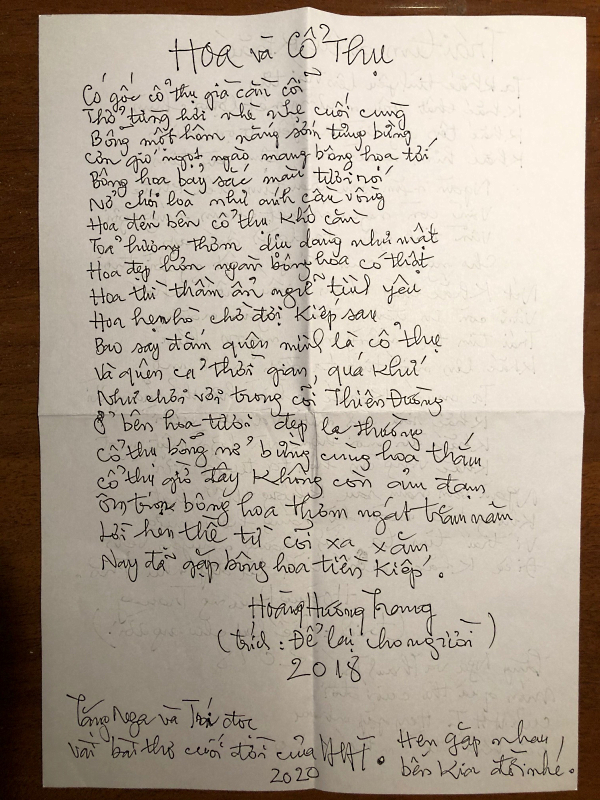 Hoa và Cổ Thụ
Có gốc cổ thụ già cằn cỗi
Thở từng hơi nhè nhẹ cuối cùng
Bỗng một hôm nắng sớm tưng bừng
Cơn gió ngọt ngào mang bông hoa tới
Bông hoa bảy sắc màu tươi rói
Nở chói loà như ánh cầu vồng
Hoa đến bên cổ thụ khô cằn
Toả hương thơm dịu dàng như mật
Hoa đẹp hơn ngàn bông hoa có thật
Hoa thì thầm ẩn ngữ tình yêu
Hoa hẹn hò chờ đợi kiếp sau
Bao say đắm quên mình là cổ thụ
Và quên cả thời gian, quá khứ
Như chơi vơi trong cõi Thiên Đường
Ở bên hoa tươi đẹp lạ thường
Cổ thụ bỗng nở bừng cùng hoa thắm
Cổ thụ giờ đây không còn ảm đạm
Ôm trọn bông hoa thơm ngát trăm năm
Lời hẹn thề từ cõi xa xăm
Nay đã gặp bông hoa tiền kiếp.
Hoàng Hương Trang
(trích: Để lại cho người)
2018
Tặng Nga và Trí đọc
vài bài thơ cuối đời của HHT. Hẹn gặp nhau
2020 bên kia đời nhé.